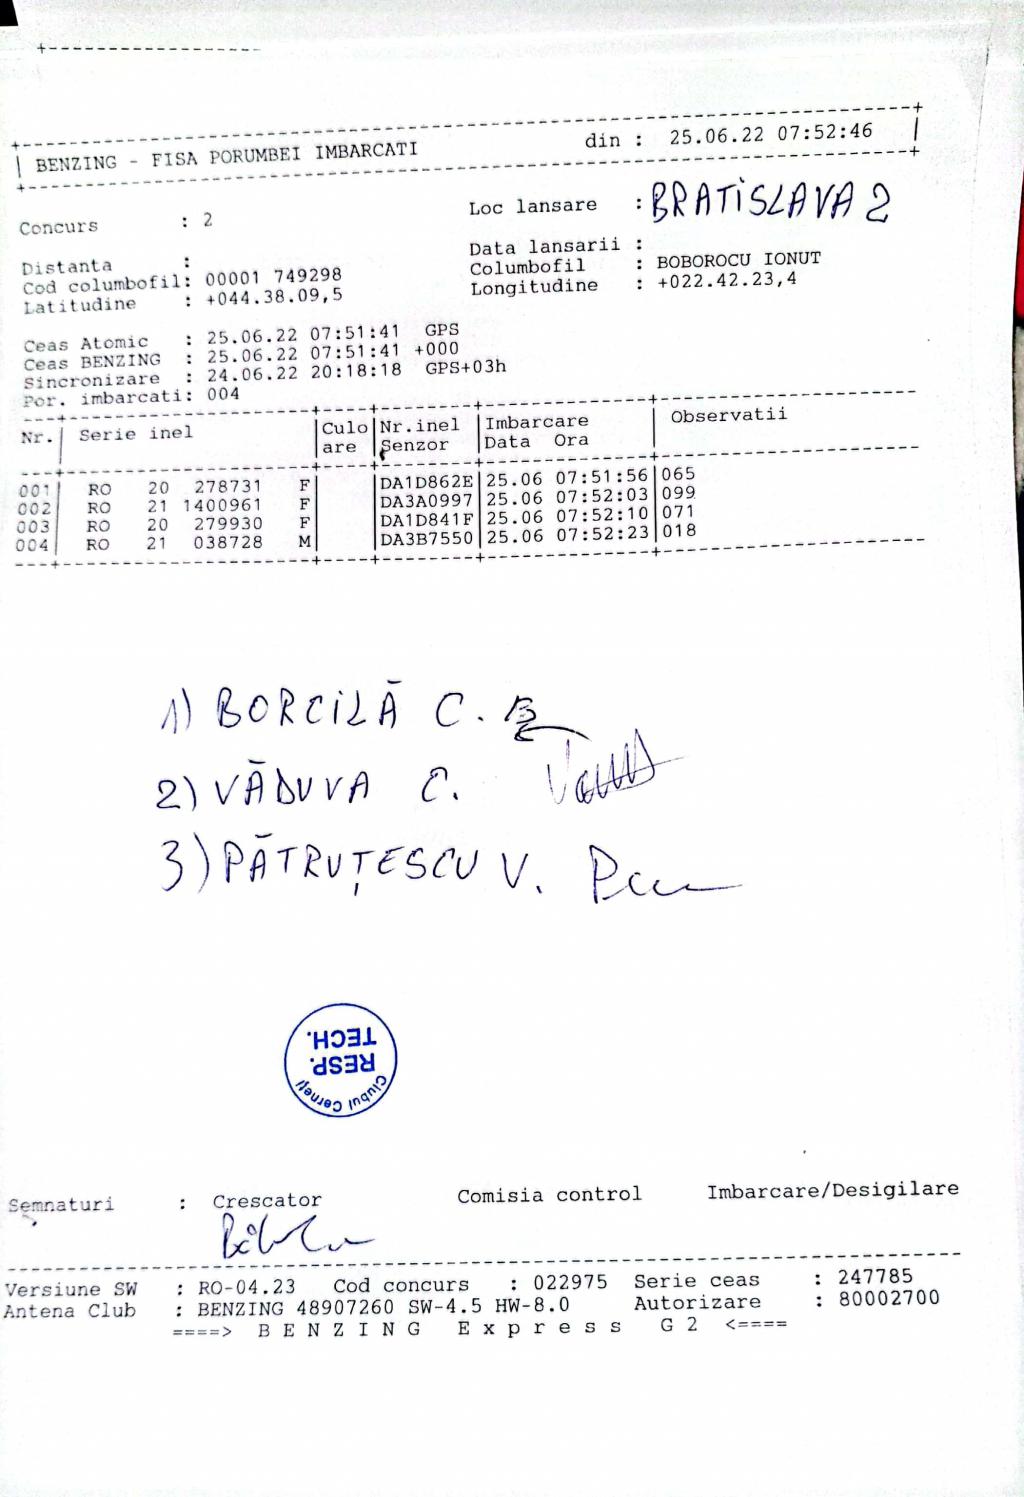 BENZING - FISA PORUMBEI IMBARCATI din : 25.06.22 07:52:46
Concurs : 2 Loc lansare : BRATISLAVA 2
Distanta : Data lansarii :
Cod columbofil: 00001 749298 Columbofil : BOBOROCU IONUT
Latitudine : +044.38.09,5 Longitudine : +022.42.23,4
Ceas Atomic : 25.06.22 07:51:41 GPS
Ceas BENZING : 25.06.22 07:51:41 +000
Sincronizare : 24.06.22 20:18:18 GPS+03h
Por. imbarcati: 004
Nr.| Serie inel |Culo|Nr.inel |Imbarcare | Observatii
|are |Senzor |Data Ora |
001| RO 20 278731 F| |DA1D862E|25.06 07:51:56|065
002| RO 21 1400961 F| |DA3A0997|25.06 07:52:03|099
003| RO 20 279930 F| |DA1D841F|25.06 07:52:10|071
004| RO 21 038728 M| |DA3B7550|25.06 07:52:23|018
1) BORCILĂ C.
2) VĂDUVA C.
3) PĂTRUȚESCU V.
RESP.
TECH.
Clubul Cerneți
Semnaturi : Crescator Comisia control Imbarcare/Desigilare
Versiune SW : RO-04.23 Cod concurs : 022975 Serie ceas : 247785
Antena Club : BENZING 48907260 SW-4.5 HW-8.0 Autorizare : 80002700
====> B E N Z I N G E x p r e s s G 2 <====